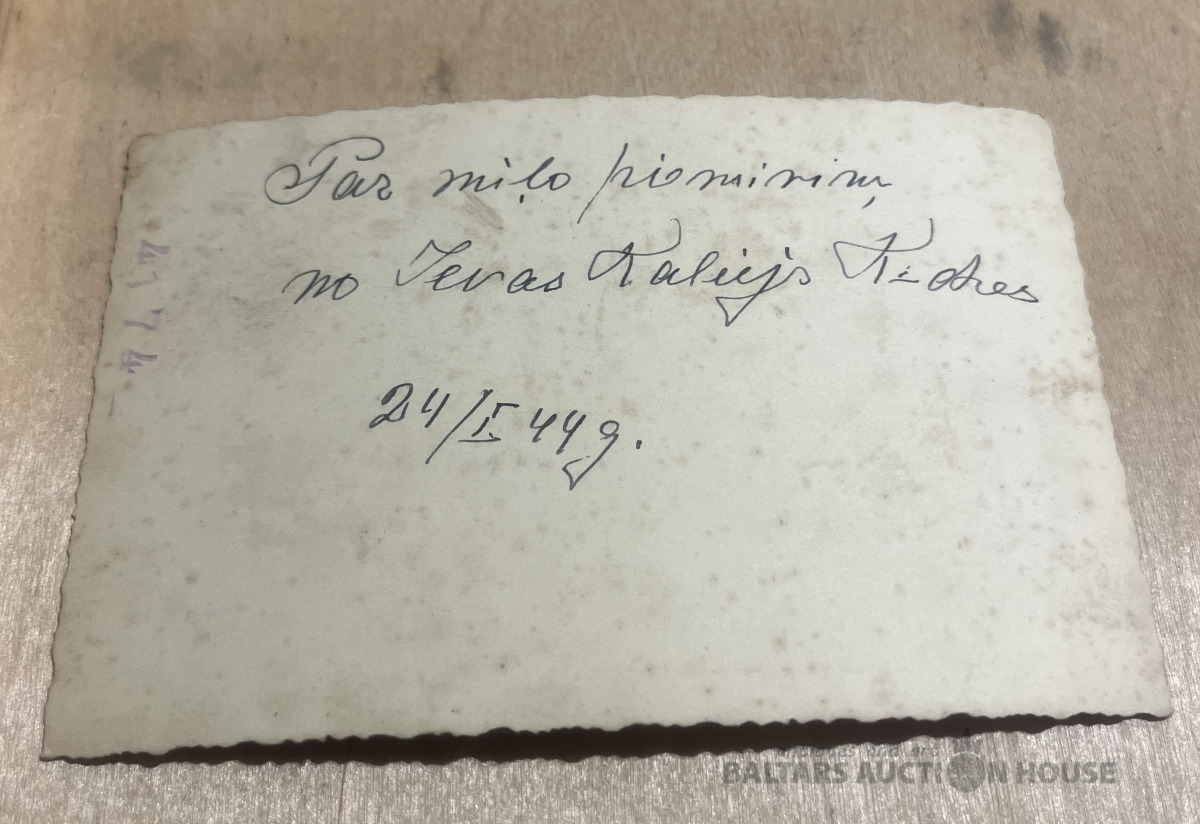 Par miļo piemiņiņ
no Ievas Kalējs
24/I 44 g.
4174
BALTARS AUCTION HOUSE